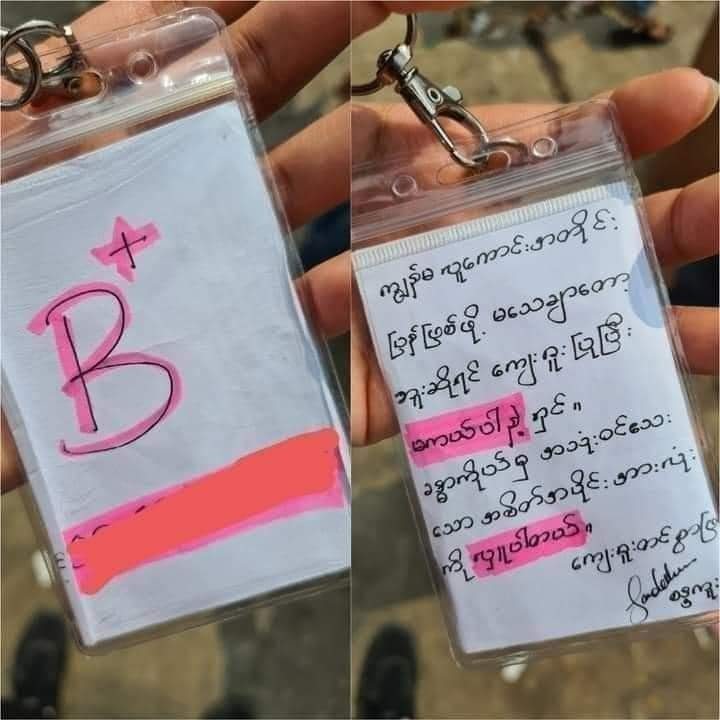 B+
ကျွန်မ လူကောင်းအတိုင်း
ပြန်ဖြစ်ဖို့ မသေချာတော့
ဘူးဆိုရင် ကျေးဇူးပြုပြီး
မကယ်ပါနဲ့ ရှင်။
ခန္ဓာကိုယ်မှ အသုံးဝင်သေး
သော အစိတ်အပိုင်းအားလုံး
ကို လှူပါတယ်။
ကျေးဇူးတင်စွာဖြ